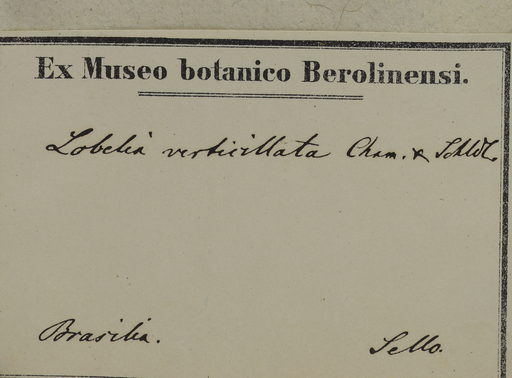 Ex Museo botanico Berolinensi.
Lobelia verticillata Cham. & Schldl.
Brasilia.
Sello.